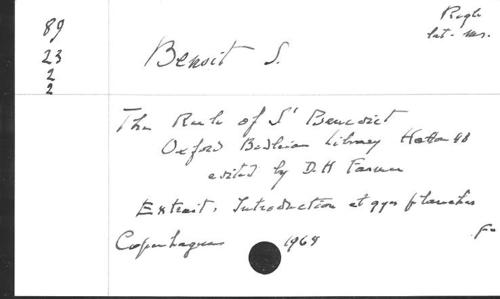 89
23
2
2
Benoit S.
Regle
lat. ms.
The Rule of St Benedict
Oxford Bodleian Library Hatton 48
edited by D. H Farmer
Extrait. Introduction et qqes planches
Copenhague 1968